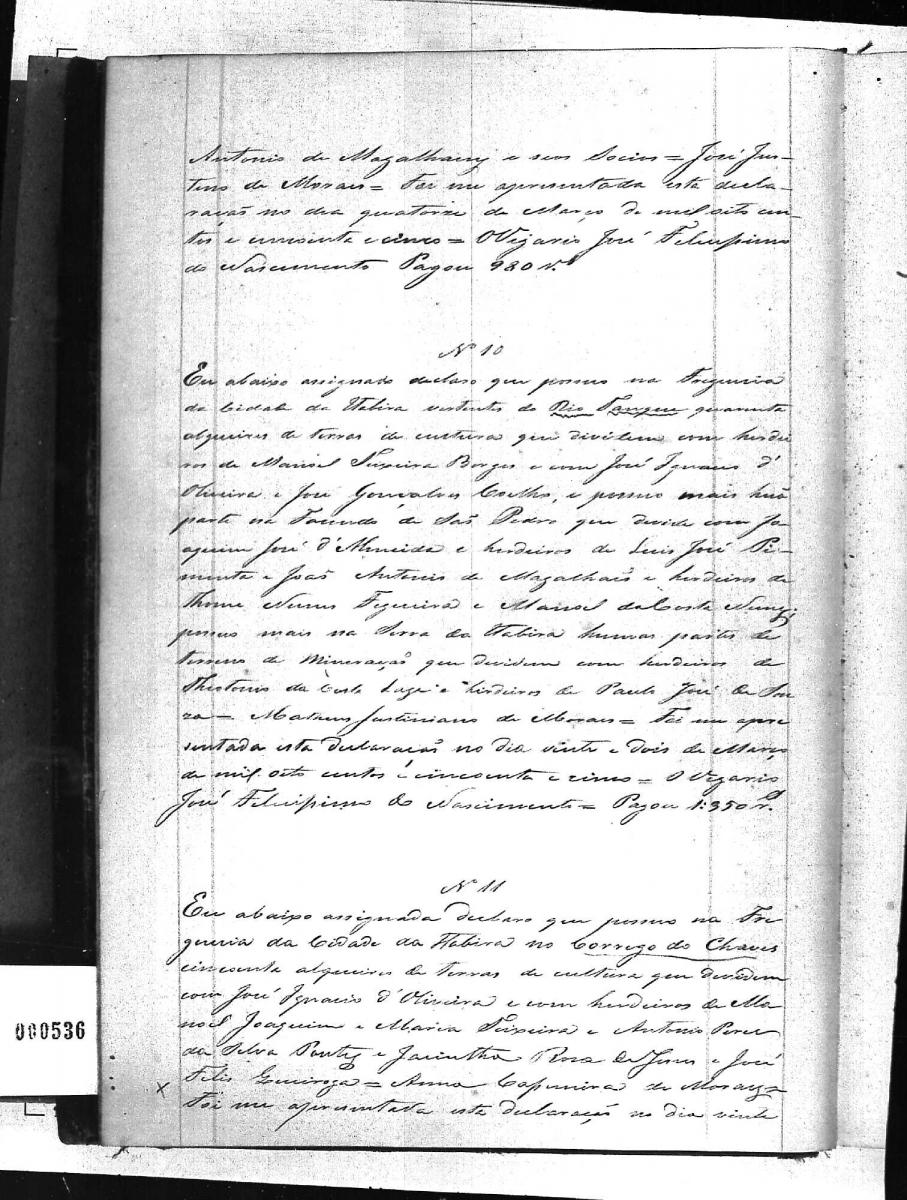 Antonio de Magalhaens e seos Socios = José Jus-
tino de Morais = Foi me apresentada esta decla-
ração no dia quatorze de Março de mil oito cen-
tos e cincoenta e cinco = O Vigario José Felicissimo
do Nascimento Pagou 980 rs
Nº 10
Eu abaixo assignado declaro que possuo na Freguesia
da Cidade da Itabira vertentes do Rio Tanque quarenta
alqueires de terras de cultura que dividem com herdei
ros de Manoel Teixeira Borges e com José Ignacio d'
Oliveira e José Gonsalves Coelho, e possuo mais huã
parte na Fazenda de Saõ Pedro que devide com Jo-
aquim José d'Almeida e herdeiros de Luis José Pi-
menta e Joaõ Antonio de Magalhaẽs e herdeiros de
Thome Nunes Figueira e Manoel da Costa Nunes;
possuo mais na Serra da Itabira humas partes de
terreno de Mineração que devidem com herdeiros de
Theotonio da Costa Lage e herdeiros de Paulo José de Sou
za = Mataus Justiniano de Morais = Foi me apre
sentada esta declaração no dia vinte e dois de Março
de mil oito centos e cincoenta e cinco = O Vigario
José Felicissimo do Nascimento = Pagou 1:350 rs
Nº 11
Eu abaixo assignada declaro que possuo na Fre
guesia da Cidade da Itabira no Corrego do Chaves
cincoenta alqueires de terras de cultura que devidem
com José Ignacio d'Oliveira e com herdeiros de Ma
noel Joaquim e Maria Teixeira e Antonio Peres
da Silva Pontes e Jacintha Rosa de Jesus e José
Felis Gueiroga = Anna Casemira de Moraes =
Foi me apresentada esta declaração no dia vinte
000536